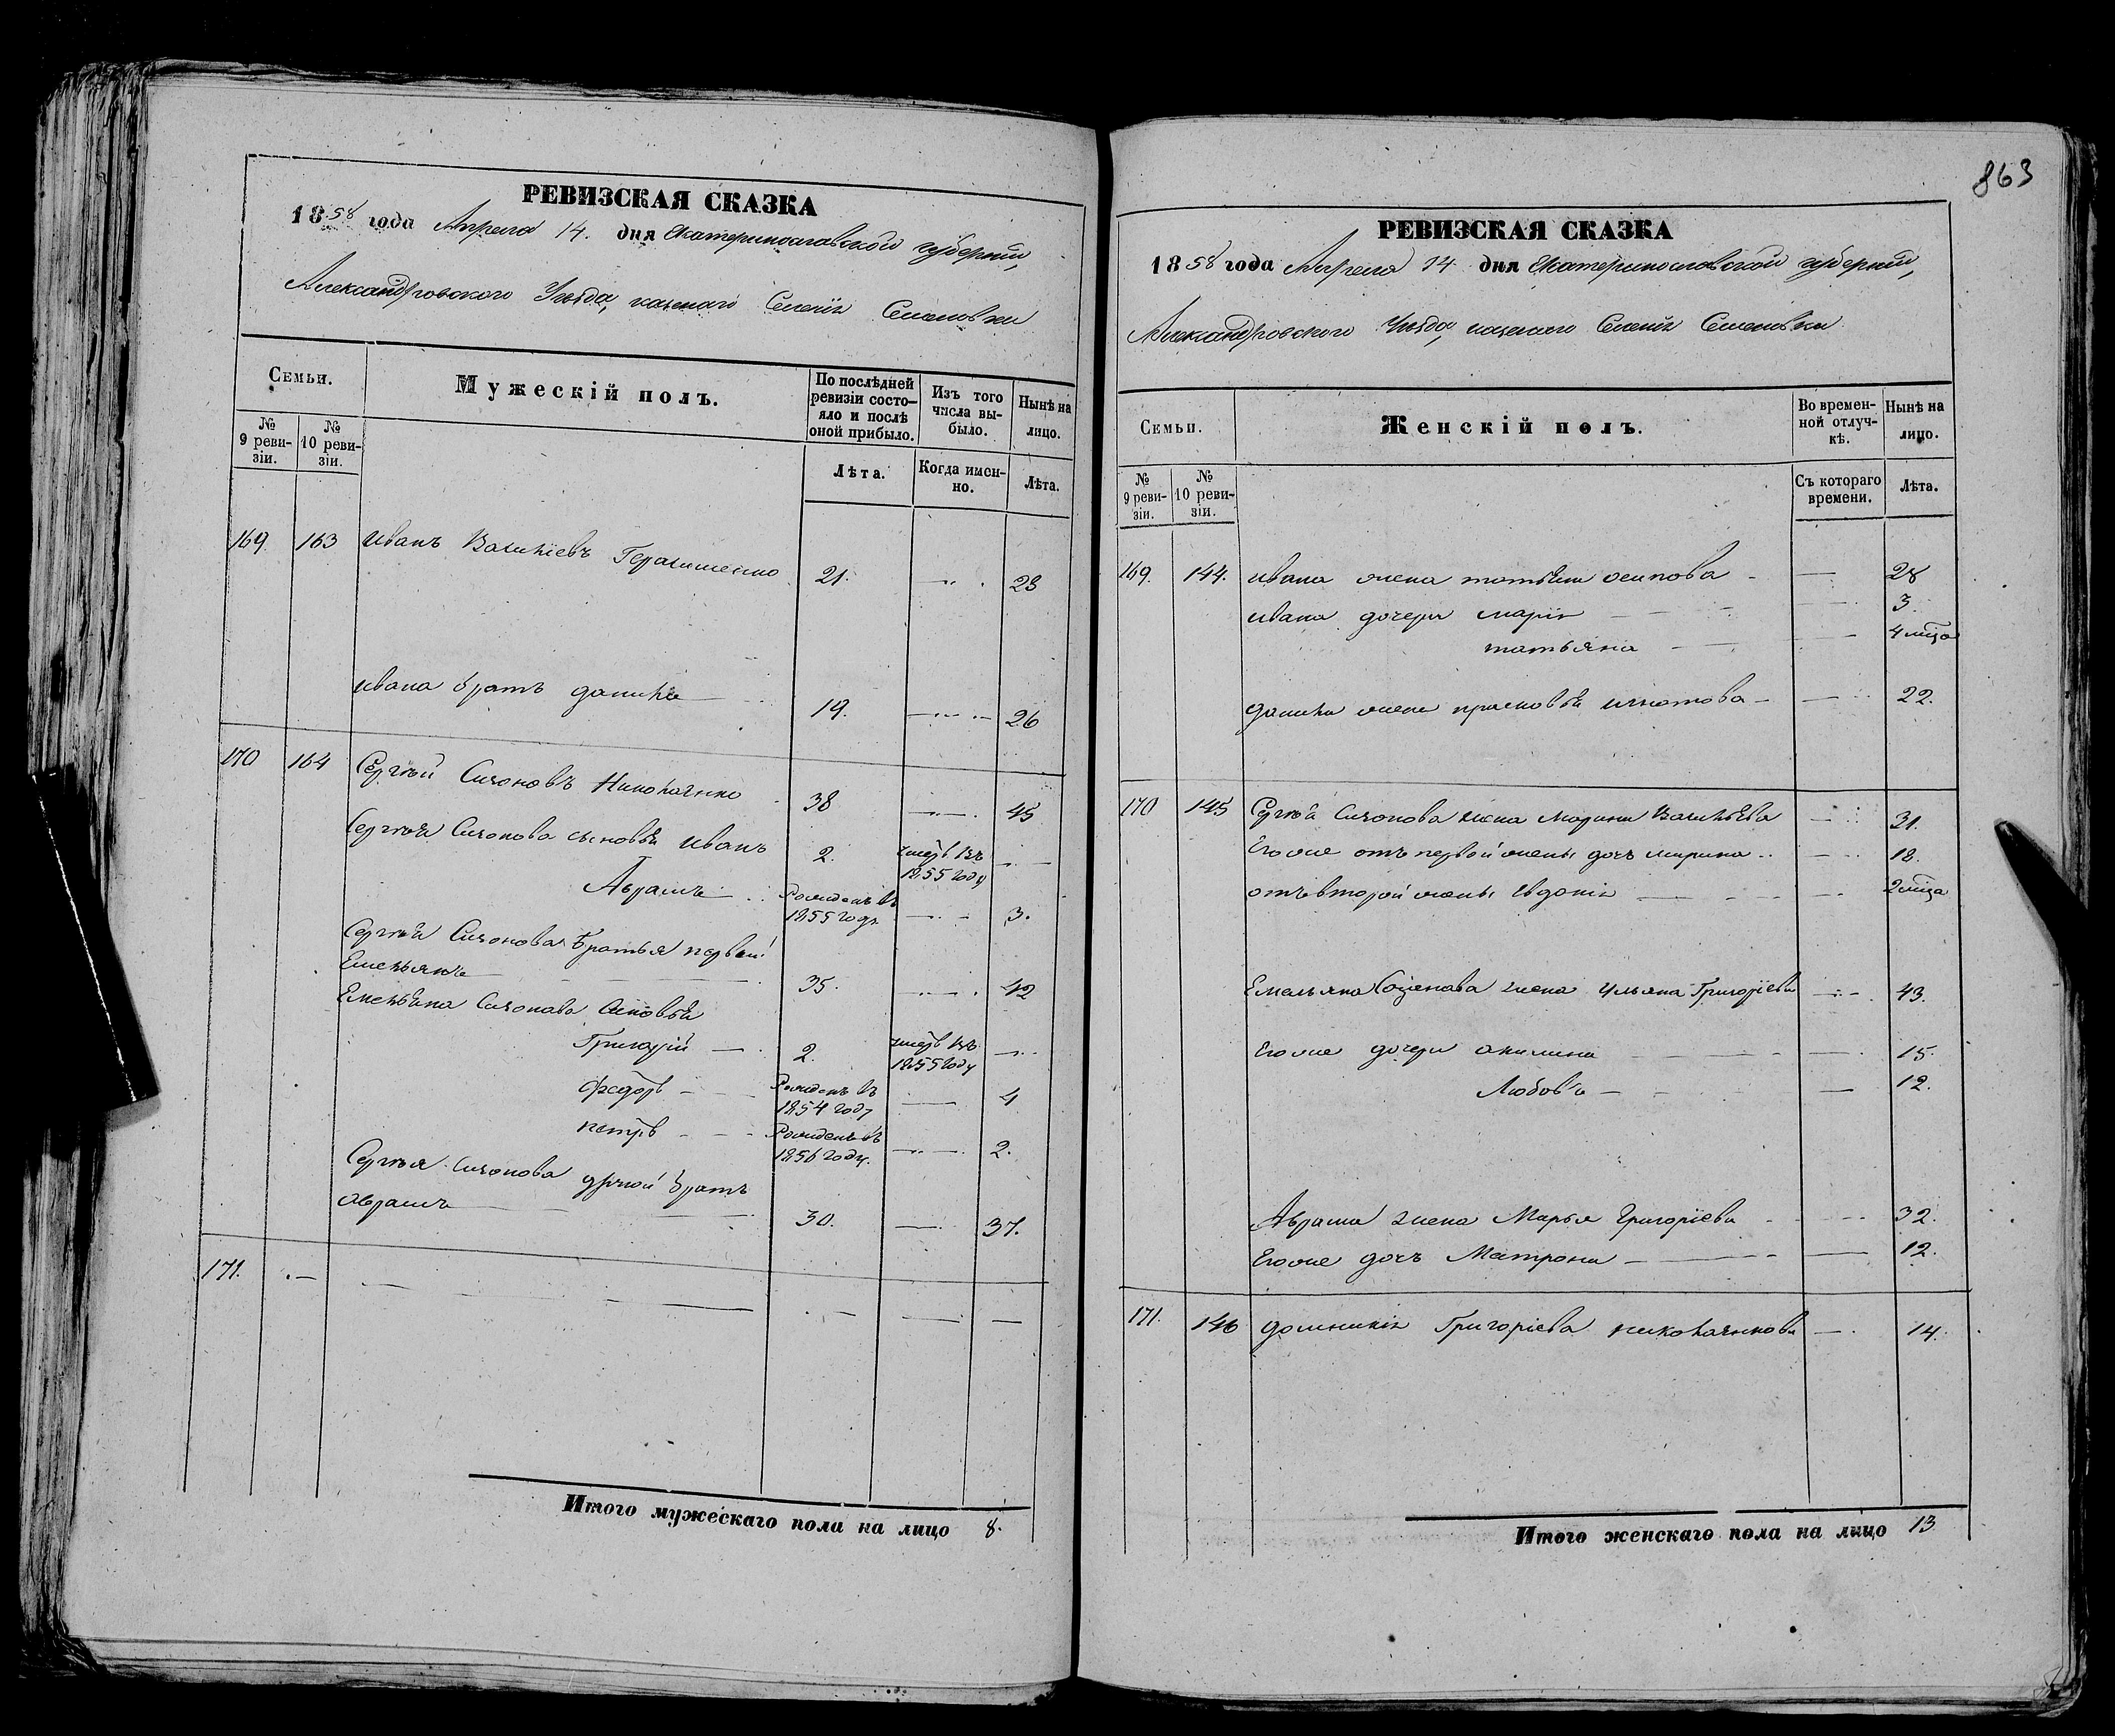 863
РЕВИЗСКАЯ СКАЗКА
1858 года Апреля 14. дня Екатеринославской губернии,
Александровского Уезда, казенаго Селенія Семеновки
Семьи.
Мужескій полъ.
По послѣдней ревизіи состо-яло и послѣ оной прибыло.
Изъ того числа вы-было.
Нынѣ на лицо.
№ 9 реви-зіи.
№ 10 реви-зіи.
Лѣта.
Когда имен-но.
Лѣта.
169. 163 Иванъ Василіевъ Герасименко 21. 28
Ивана братъ данила 19. 26
170 164 Сергѣй Николаенко 38 45
Сергѣя сыновья Иванъ 2. умеръ въ 1855 году
Абрамъ Рожденъ въ 1855 году 3.
Сергѣя братья первый
Емельянъ 35. 42
Емельяна сыновья
Григорій 2. умеръ въ 1855 году
федоръ Рожденъ въ 1854 году 4
петръ Рожденъ въ 1856 году. 2.
Сергѣя другой братъ
Абрамъ 30. 37.
171.
Итого мужескаго пола на лицо 8.
РЕВИЗСКАЯ СКАЗКА
1858 года Апреля 14 дня Екатеринославской губернии,
Александровского Уезда, казенаго Селенія Семеновки
Семьи.
Женскій полъ.
Во времен-ной отлуч-кѣ.
Нынѣ на лицо.
№ 9 реви-зіи.
№ 10 реви-зіи.
Съ котораго времени.
Лѣта.
169. 144. Ивана жена татьяна осипова 28
Ивана дочери марія 3
татьяна 4 мѣца
данилы жена прасковья игнатова 22.
170 145 Сергѣя жена Марина Васильева 31.
Егоже отъ первой жены дочь марина 18.
отъ второй жены Евдокія 2 мѣца
Емельяна жена Ульяна Григоріева 43.
Егоже дочери акилина 15.
Любовь 12.
Абрама жена Марья Григоріева 32.
Егоже дочь Матрона 12.
171. 146 домникія Григоріева николаенкова 14.
Итого женскаго пола на лицо 13